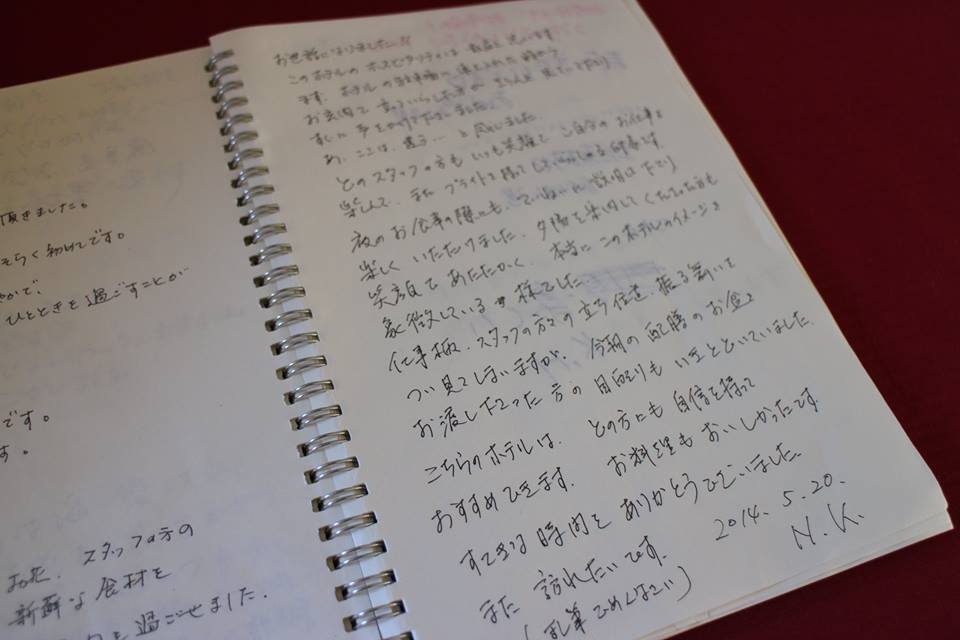 頂きました。
そらく初めてです。
やかで、
ひとときを過ごすことが
です。
す。
また、スタッフの方の
新鮮な食材を
を過ごせました。
お世話になりました!!
このホテルのホスピタリティは 最高と思います
ます。ホテルの駐車場に
お玄関で 立っていらした方が
すぐに 声をかけて下さいました。
あ、ここは、違う… と感じました。
どのスタッフの方も いつも笑顔で ご自分のお仕事を
楽しんで、また プライドを持って いらっしゃる印象です。
夜のお食事の際にも、
楽しくいただけました。夕陽を案内してくださった方も
笑顔であたたかく、本当に このホテルのイメージを
象徴している様でした。
仕事柄、スタッフの方々の立ち位置、振る舞いを
つい見てしまいますが、今朝の配膳のお盆を
お渡しだった方の目配りも いきとどいていました。
こちらのホテルは、どの方にも 自信を持って
おすすめできます。お料理もおいしかったです。
すてきな時間を ありがとうございました。
また 訪れたいです。 2014. 5. 20.
(乱筆ごめんなさい) N.K.